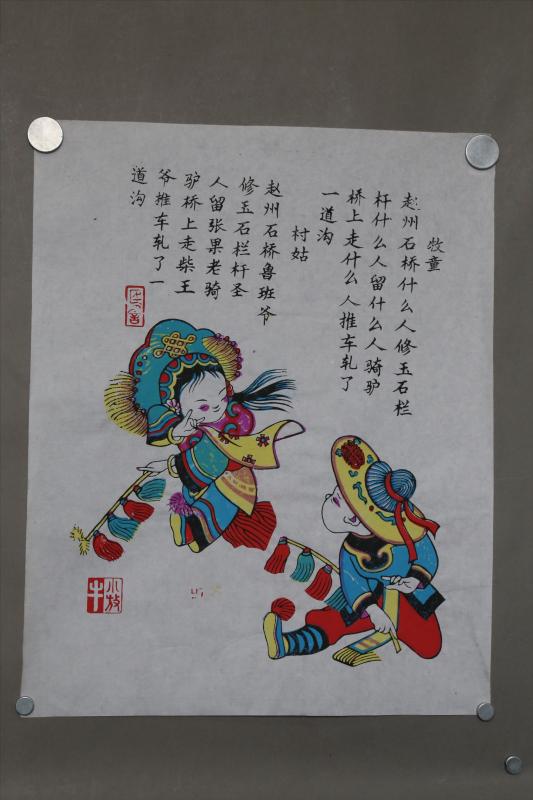 牧童
赵州石桥什么人修玉石栏
杆什么人留什么人骑驴
桥上走什么人推车轧了
一道沟
村姑
赵州石桥鲁班爷
修玉石栏杆圣
人留张果老骑
驴桥上走柴王
爷推车轧了一
道沟
小放牛